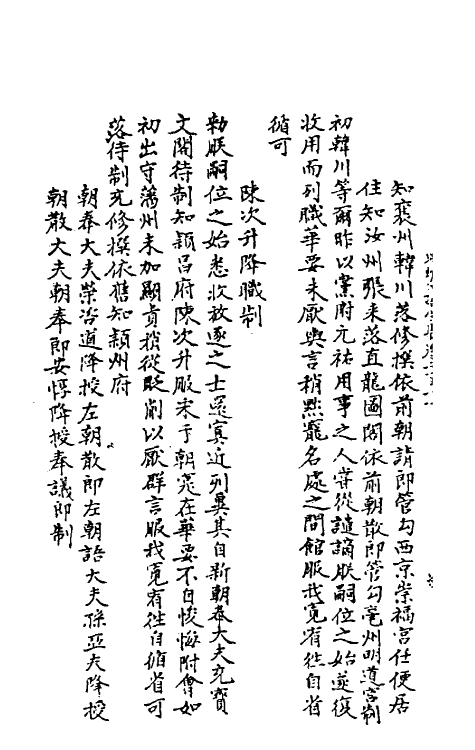 知襄州韓川落修撰依前朝請郎管勾西京崇福宮任便居
住知汝州張耒落直龍圖閣依前朝散郎管勾亳州明道宮制
初韓川等爾昨以黨附元祐用事之人嘗從譴謫朕嗣位之始遂復
收用而列職華要未厭輿言稍黜寵名處之閒館服我寬宥往自省
循可
陳次升降職制
勅朕嗣位之始悉收放逐之士還寘近列冀其自新朝奉大夫充寶
文閣待制知潁昌府陳次升服采于朝寵在華要不自悛悔附會如
初出守藩州未加顯責稍從貶削以厭群言服我寬宥往自循省可
落待制充修撰依舊知潁州府
朝奉大夫榮咨道降授左朝散郎左朝請大夫孫亞夫降授
朝散大夫朝奉郎安惇降授奉議郎制